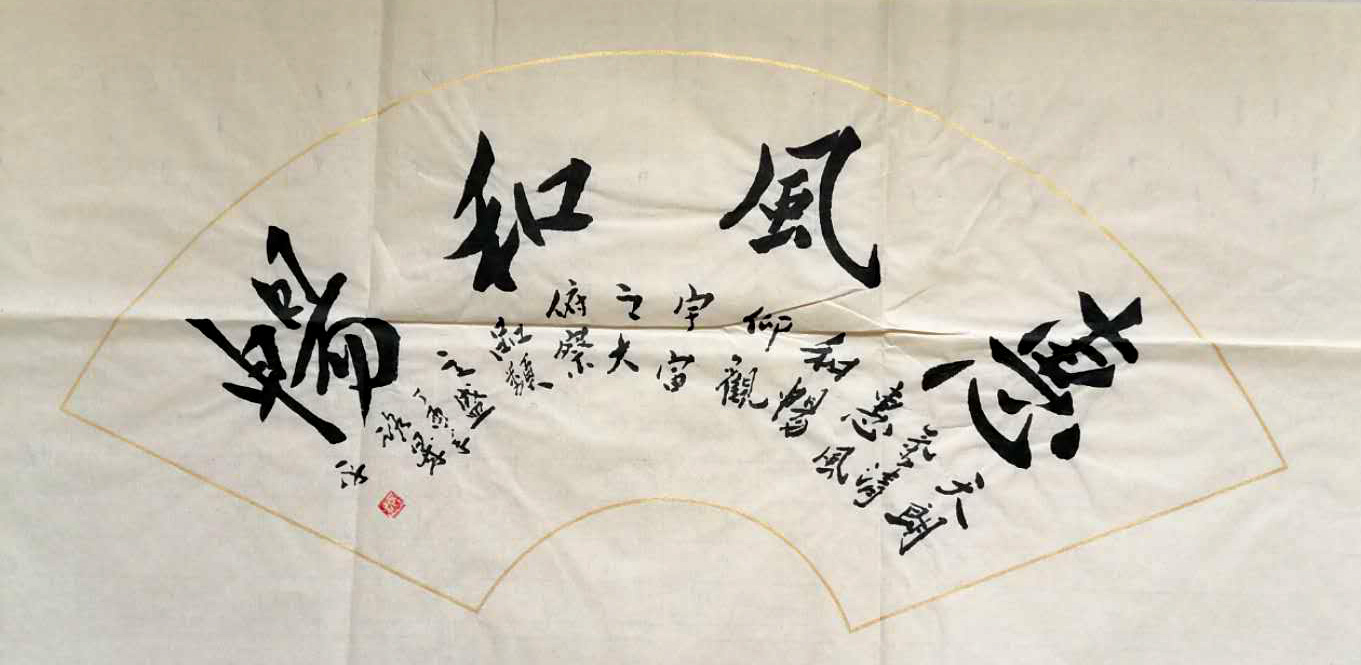 惠風和暢
天朗
氣清
惠風
和暢
仰觀
宇宙
之大
俯察
品類
之盛
丁酉